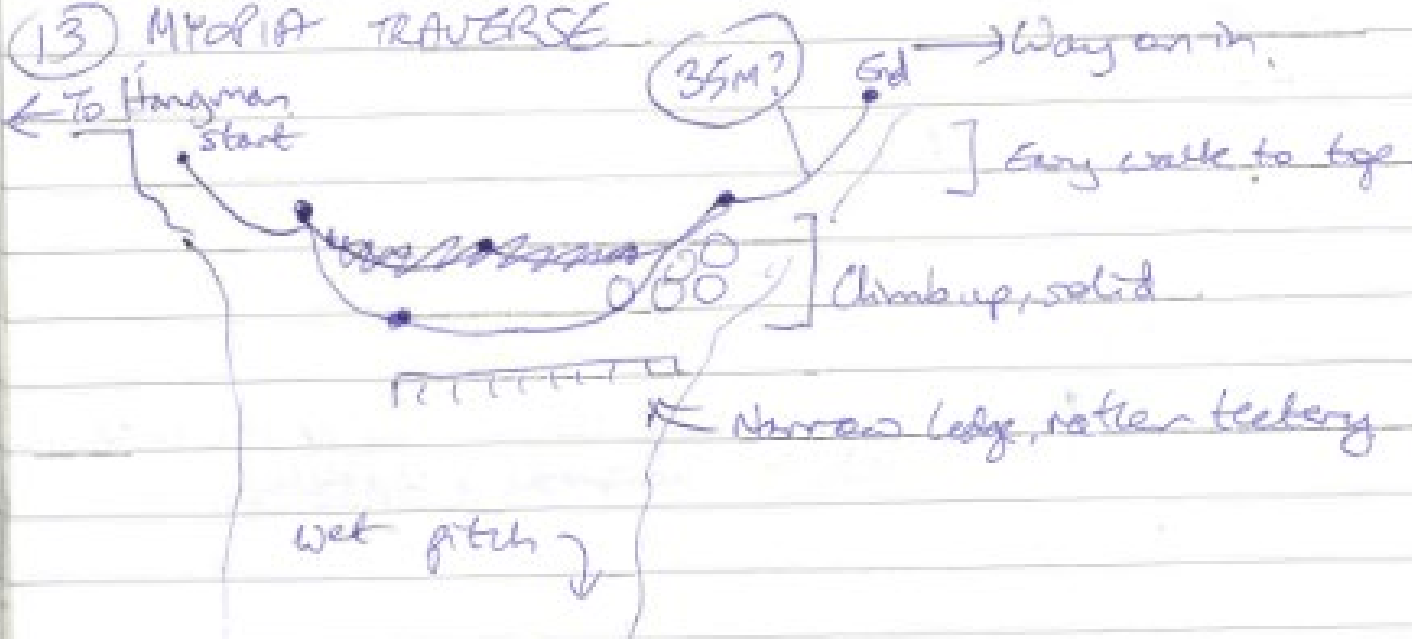 13 MYOPIA TRAVERSE
35M?
End → Way on in.
← To Hangman
start
Easy walk to top
Climb up, solid
Narrow ledge, rather teetery
wet pitch